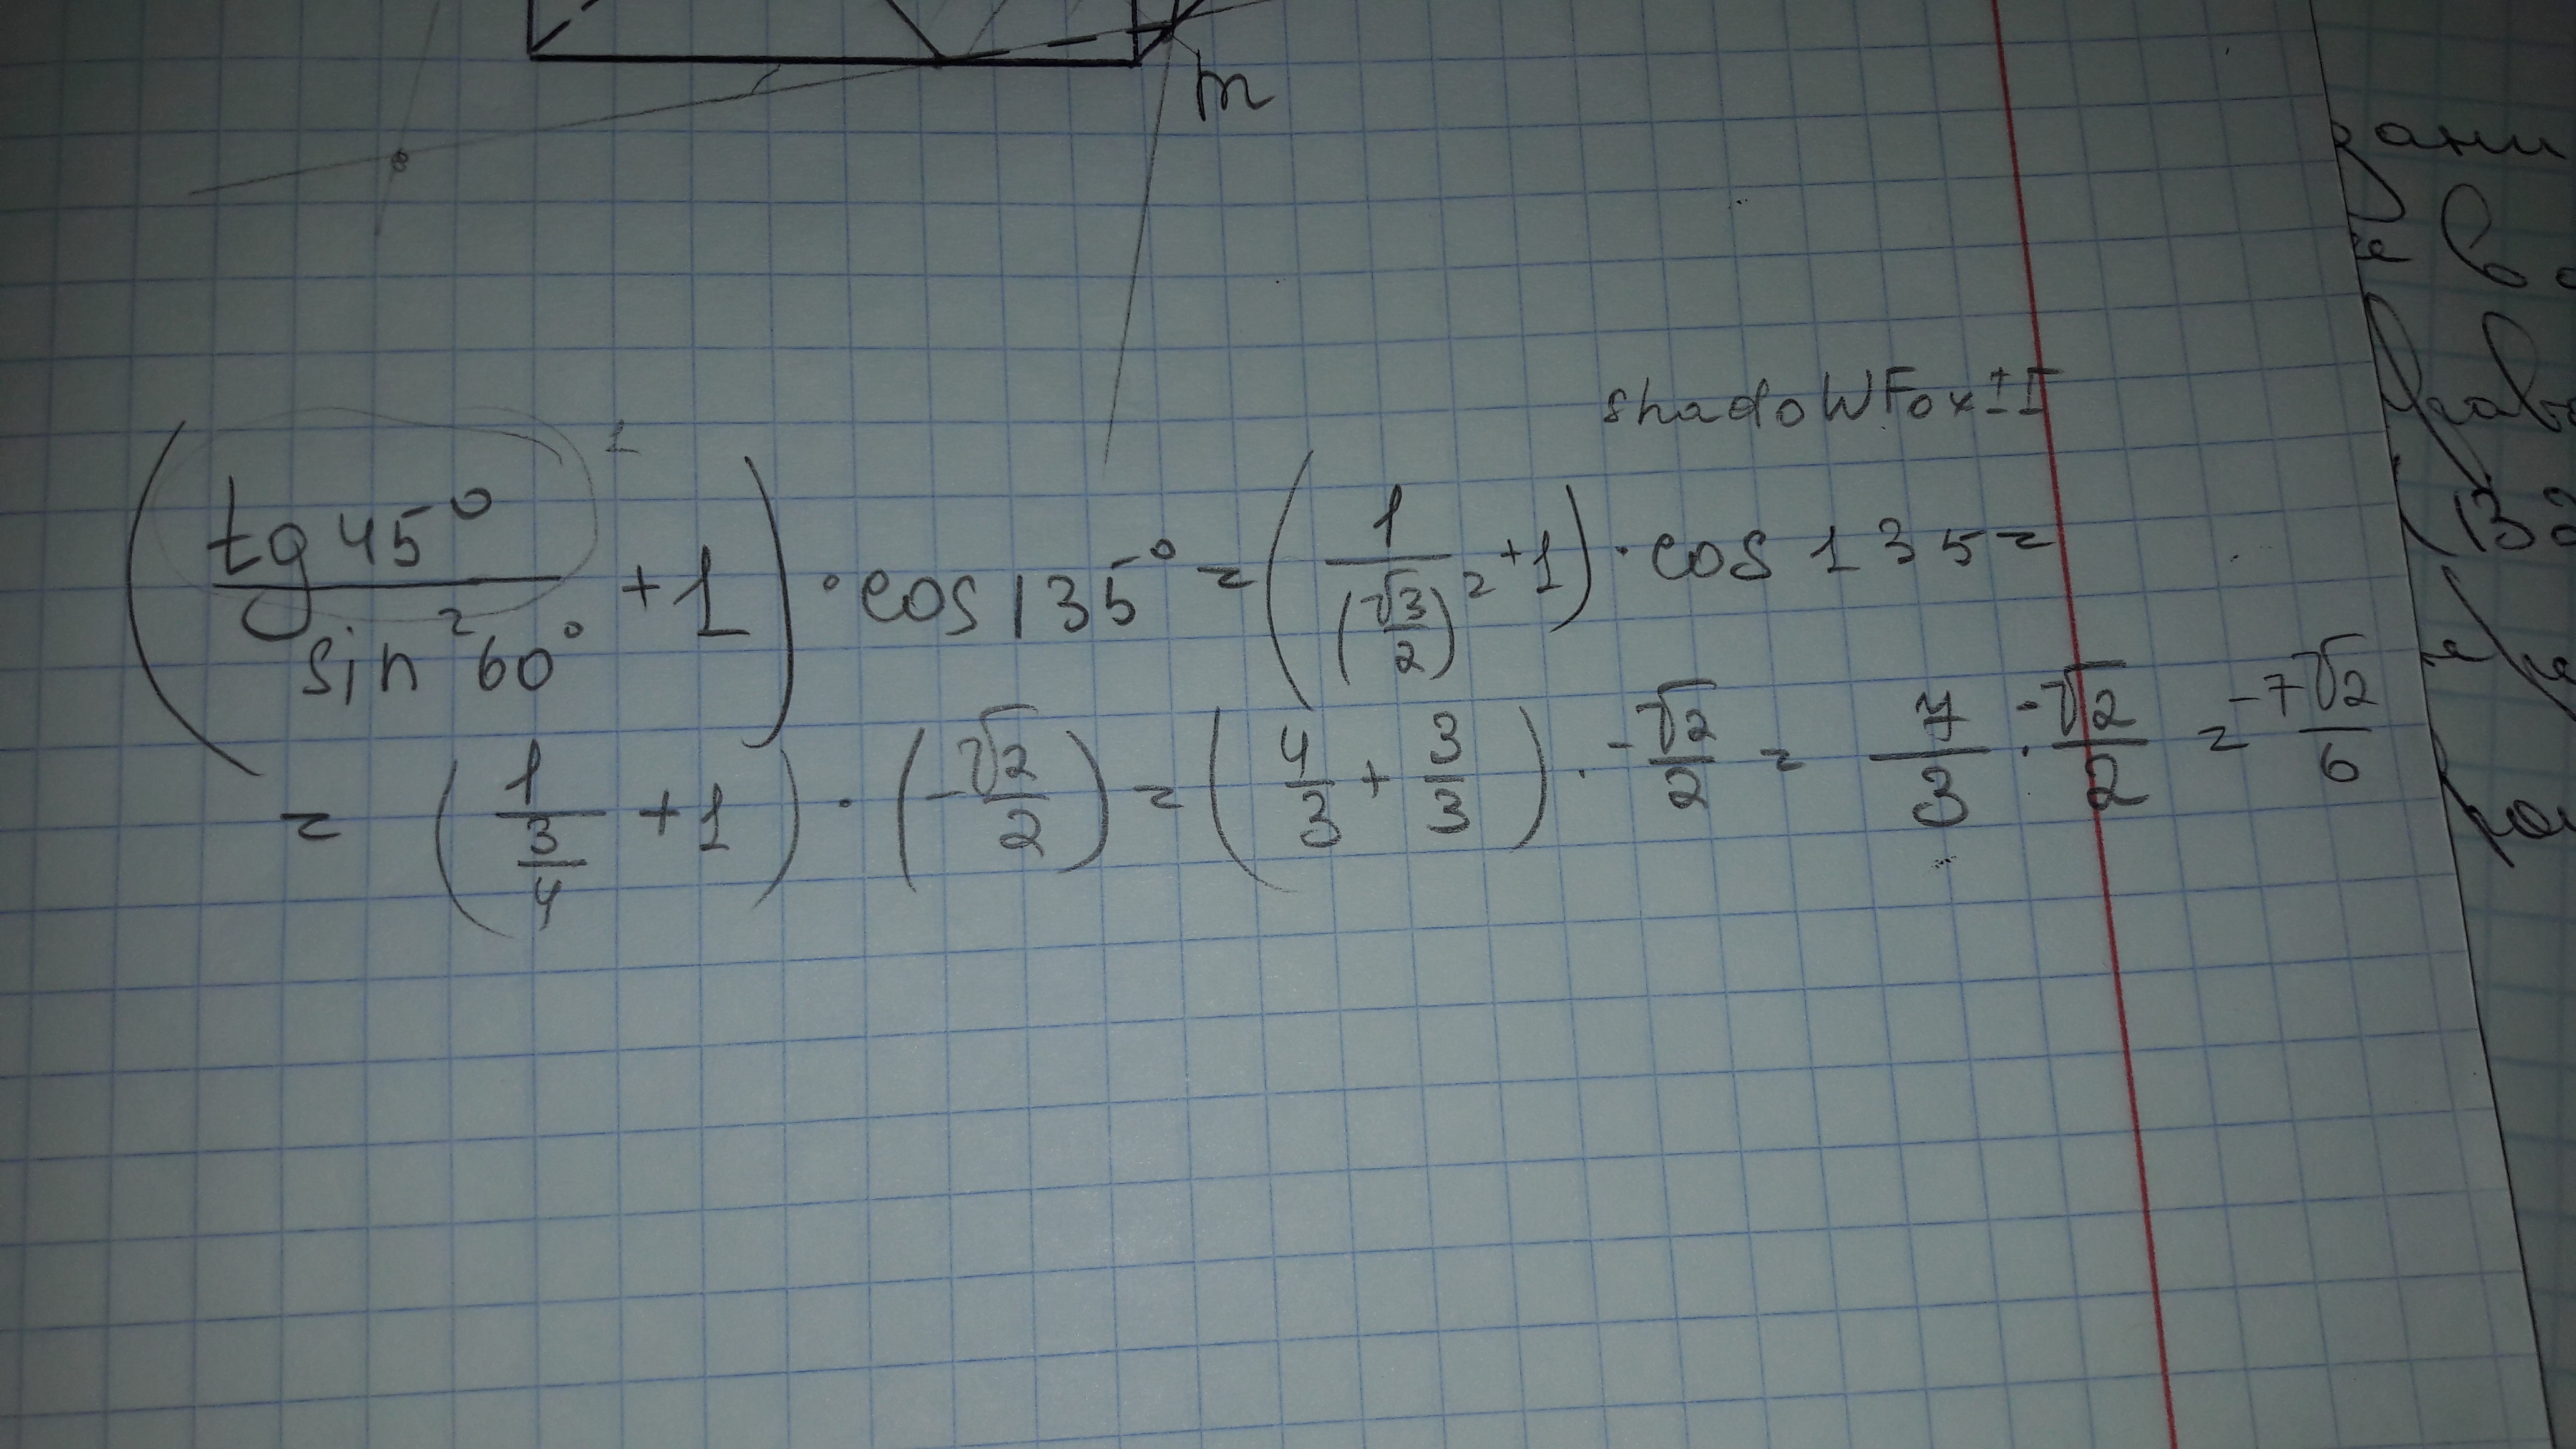 m
shadoWFox±I
(tg 45° / sin² 60° + 1) · cos 135° = (1 / (√3/2)² + 1) · cos 135 =
= (1 / (3/4) + 1) · (-√2/2) = (4/3 + 3/3) · -√2/2 = 7/3 · -√2/2 = -7√2/6